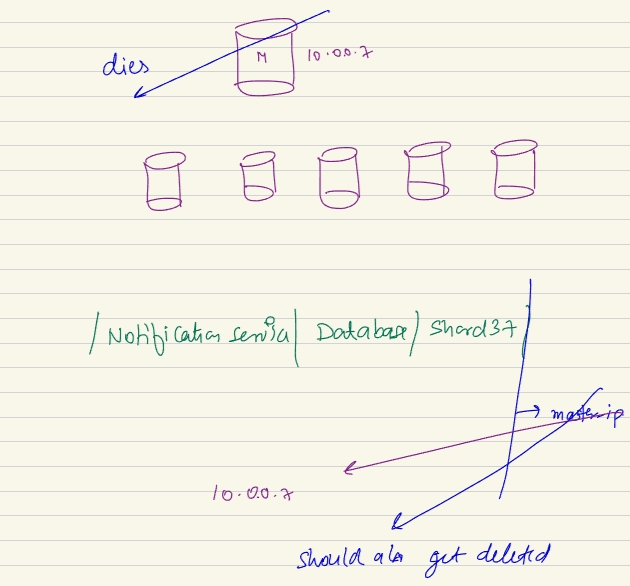 M 10.0.0.7
dies
/Notification service/ Database/ Shard37/
→ master-ip
10.0.0.7
should also get deleted